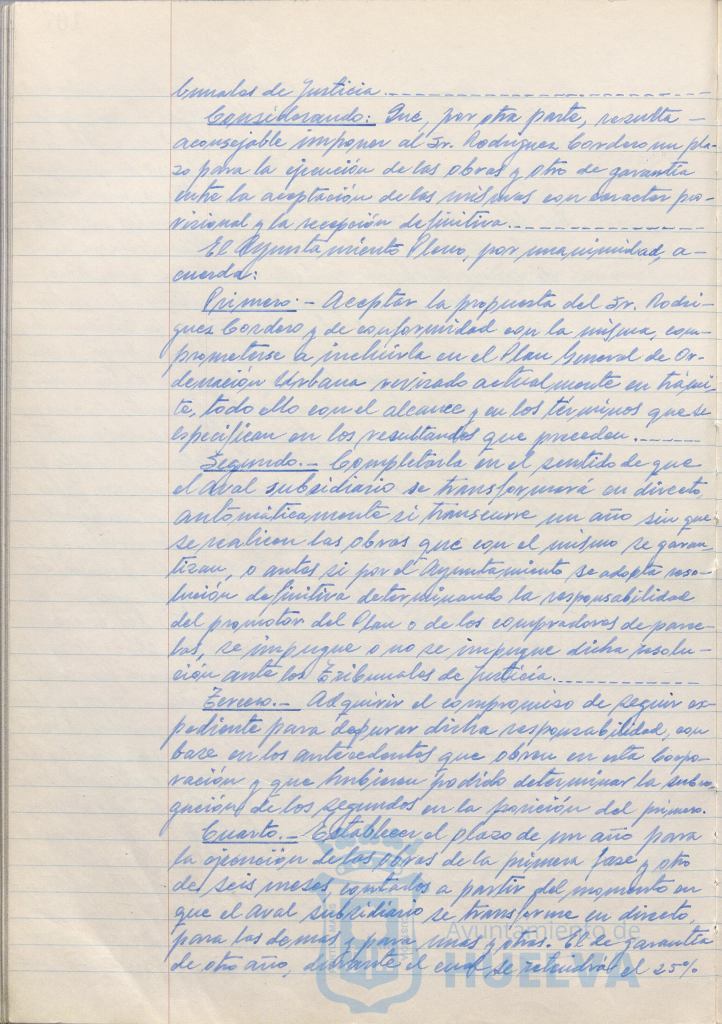 bunales de Justicia.
Considerando: Que, por otra parte, resulta
aconsejable imponer al Sr. Rodríguez Cordero un pla-
zo para la ejecución de las obras y otro de garantía
entre la aceptación de las mismas con caracter pro-
visional y la recepción definitiva.
El Ayuntamiento Pleno, por unanimidad, a-
cuerda:
Primero.- Aceptar la propuesta del Sr. Rodrí-
guez Cordero y de conformidad con la misma, com-
prometerse a incluirla en el Plan General de Or-
denación Urbana revisado actualmente en trámi-
te, todo ello con el alcance y en los términos que se
especifican en los resultandos que preceden.
Segundo.- Completarla en el sentido de que
el aval subsidiario se transformará en directo,
automáticamente si transcurre un año sin que
se realicen las obras que con el mismo se garan-
tizan, o antes si por el Ayuntamiento se adopta reso-
lución definitiva determinando la responsabilidad
del promotor del Plan o de los compradores de parce-
las, se impugne o no se impugne dicha resolu-
ción ante los Tribunales de Justicia.
Tercero.- Adquirir el compromiso de seguir ex-
pediente para depurar dicha responsabilidad, con
base en los antecedentes que obren en esta Corpo-
ración y que hubieren podido determinar la subro-
gación de los segundos en la posición del primero.
Cuarto.- Establecer el plazo de un año para
la ejecución de las obras de la primera fase y otro
de seis meses, contados a partir del momento en
que el aval subsidiario se transforme en directo,
para las demas y para unas y otras. El de garantía
de otro año, durante el cual se retendrá el 25%
Ayuntamiento de
HUELVA